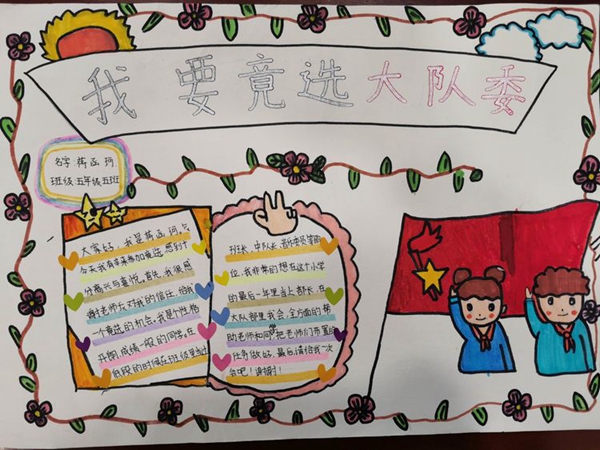 我要竞选大队委
名字:蒋函珂
班级:五年级五班
大家好,我是蒋函珂。
今天我有幸来参加竞选感到十
分高兴和喜悦。首先我很感
谢老师们对我的信任,给我
一个竞选的机会。我是个性格
开朗,成绩一般的同学。在
低段的时候在班级里当过
班长、中队长、语文
位,我非常的想在这个小学
的最后一年里当上部长,在
大队部里我会全方面的帮
助老师和同学,把老师们布置的
任务做好。最后请给我一次
会吧!谢谢!